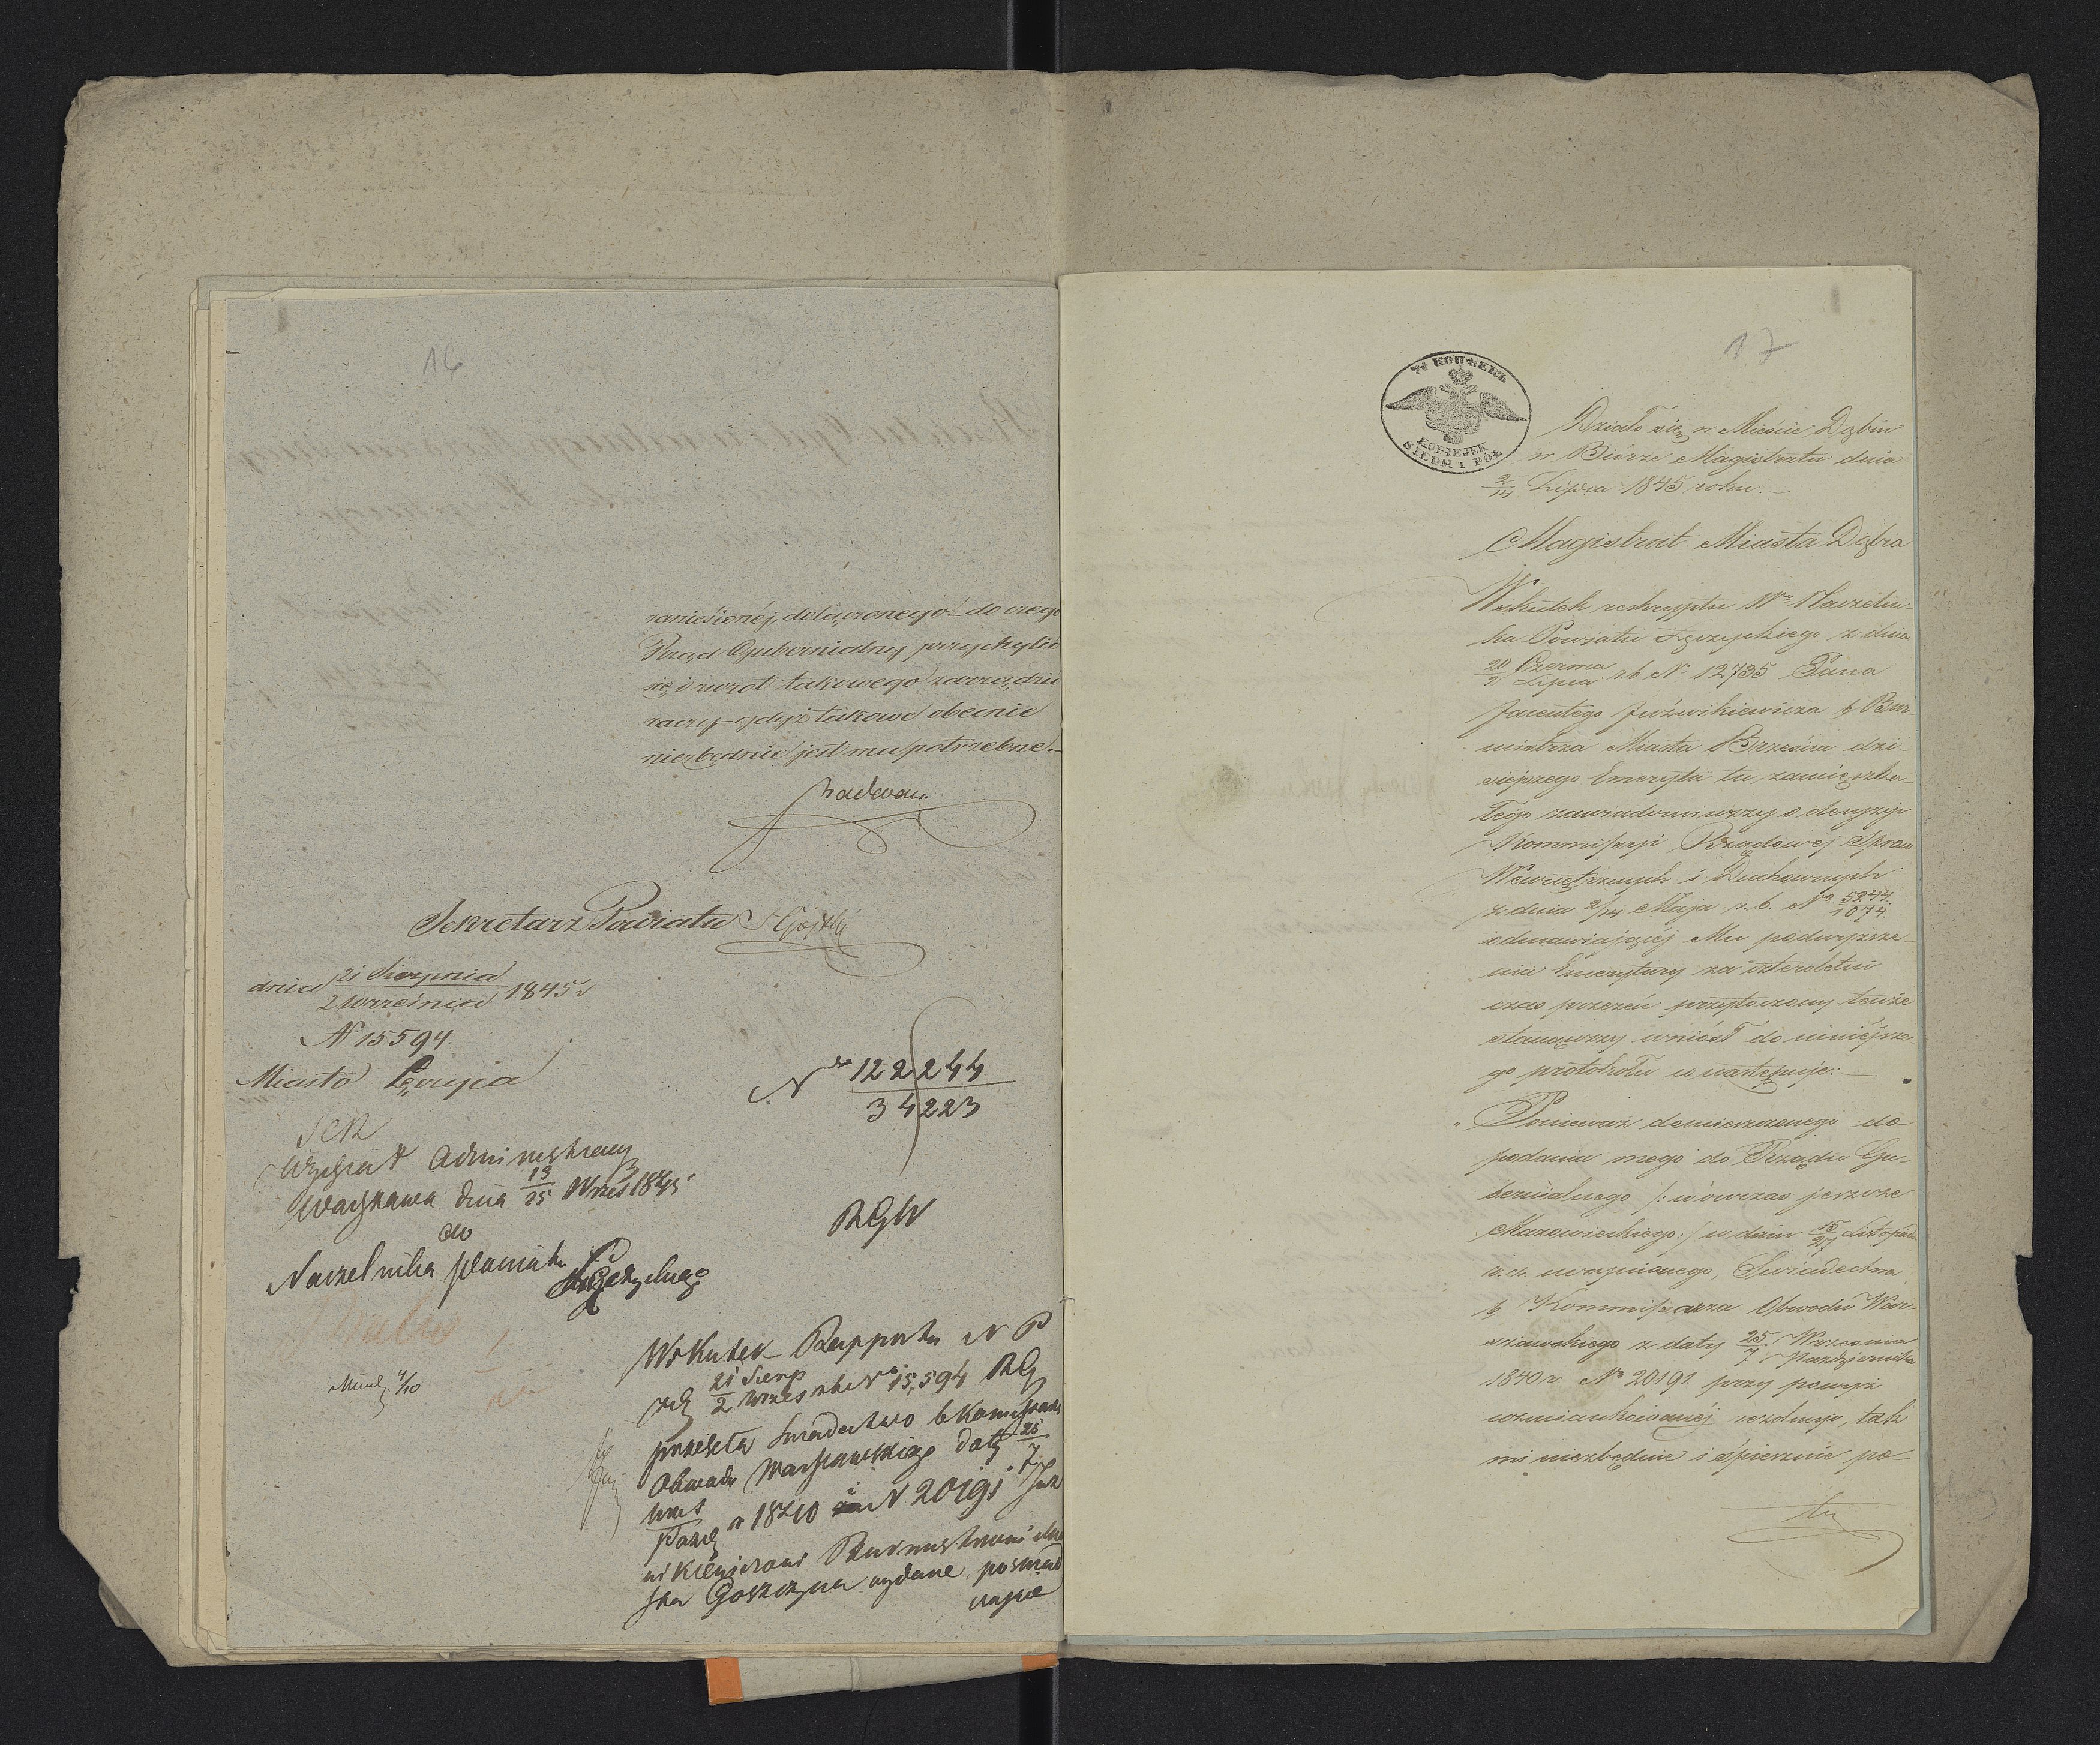 16
zaniesionéj, dołączonego – do czego
Rząd Gubernialny przychylić
się i zwrot takowego zarządzić
raczy – gdyż takowe obecnie
niezbędnie jest mu potrzebne. –
Sekretarz Powiatu
dnia 21 Sierpnia / 2 Września 1845 r
N 15594.
Miasto Łęczyca
Nr 122244 / 34223
Wydział Administracyj
Warszawa dnia 13/25 Wrześ 1845
RGW
do
Naczelnika Powiatu Łęczyckiego
Wskutek Rapportu N P
z d 21 Sierp / 2 Wrześ rb Nr 15,594 RG
przeseła Swiadectwo b Kommissarza
Obwodu Warszawskiego daty 25/7
Wrześ / Paźdz r 1840 N 20191 Jóź
wikiewiczowi Burmistrzowi Mia
sta Goszczyna wydane
17
7½ КОПѢЕКЪ
KOPIEJEK
SIEDM I PÓŁ
Działo się w Mieście Dąbiu
w Biórze Magistratu dnia
2/14 Lipca 1845 roku. –
Magistrat Miasta Dąbia
Wskutek reskryptu Wo Naczelni-
ka Powiatu Łęczyckiego z dnia
20 Czerwca / 2 Lipca r.b. No 12735 Pana
Jacentego Józwikiewicza b Bur-
mistrza Miasta Brzezin dzi-
siejszego Emeryta tu zamieszka-
łego zawiadomiwszy o decyzyi
Kommissyi Rządowej Spraw
Wewnętrznych i Duchownych
z dnia 2/14 Maja r.b. No 5244/1074.
odmawiającéj Mu podwyższe-
nia Emerytury za czteroletni
czas przezeń przytoczony tenże
stanąwszy wniósł do niniejsze-
go protokołu co następuje: –
„Ponieważ domieszczonego do
podania mego do Rządu Gu-
bernialnego /: wówczas jeszcze
Mazowieckiego:/ w dniu 15/27 Listopada
r.z. uczynionego, Swiadectwa
b Kommissarza Obwodu War-
szawskiego z daty 25 Września / 7 Października
1840 r. No 20191 przy powyż
wzmiankowanéj rezolucyi, tak
mi niezbędnie i spiesznie po-